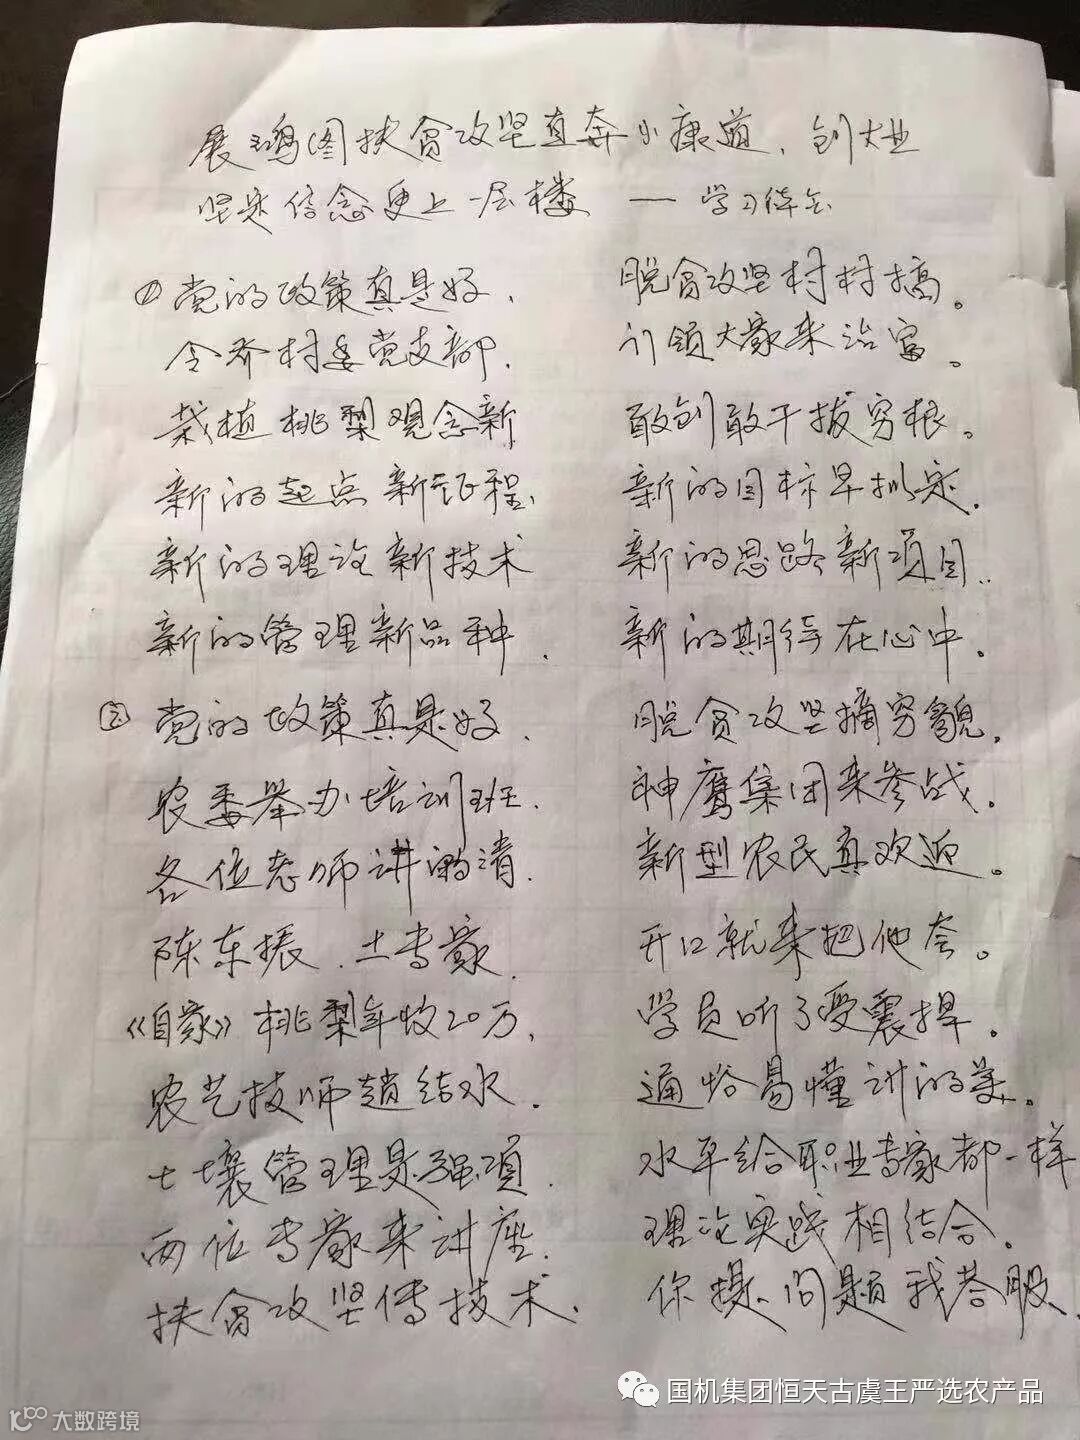 展鸿图扶贫攻坚直奔小康道、创大业
坚定信念更上一层楼 — 学习体会
① 党的政策真是好, 脱贫攻坚村村搞。
令乔村委党支部, 引领大家来治富。
栽植桃梨观念新 敢创敢干拔穷根。
新的起点新征程, 新的目标早拟定。
新的理论新技术 新的思路新项目.
新的管理新品种. 新的期待在心中.
② 党的政策真是好. 脱贫攻坚摘穷貌.
农委举办培训班. 神鹰集团来参战.
各位老师讲的清. 新型农民真欢迎。
陈东振、土专家. 开口就来把他夸。
《自家》桃梨年收20万, 学员听了受震捍.
农艺技师赵结水. 通俗易懂讲的美.
土壤管理是强项. 水平给职业专家都一样
两位专家来讲座. 理论实践相结合.
扶贫攻坚传技术. 你提问题我答服.
国机集团恒天古虞王严选农产品
大数跨境